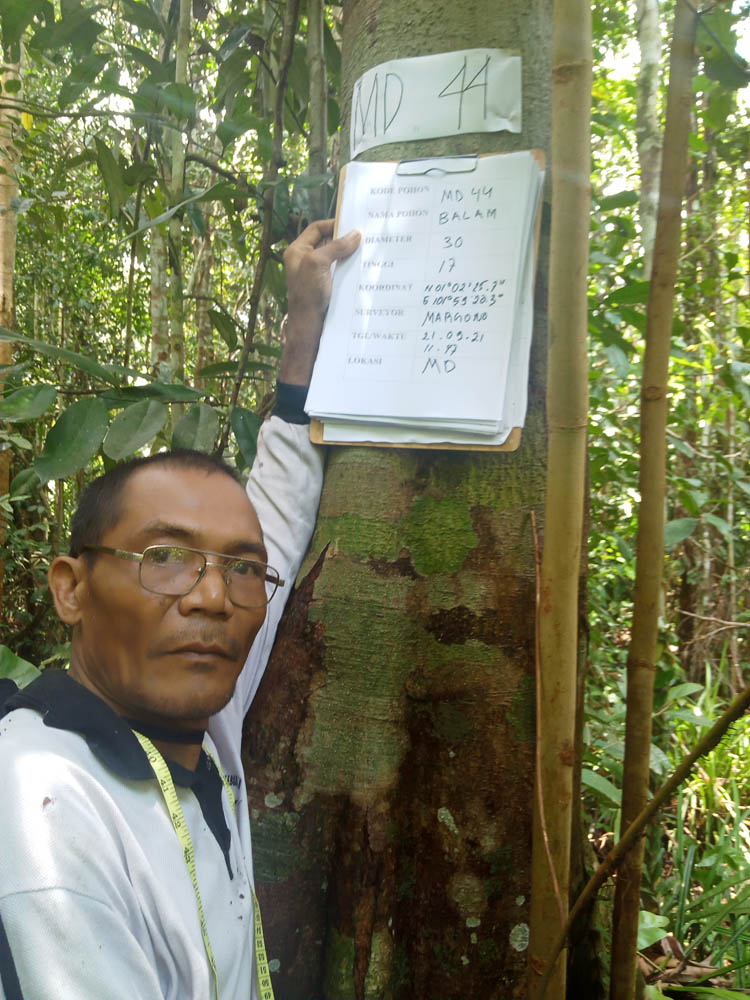 MD 44
KODE POHON MD 44
NAMA POHON BALAM
DIAMETER 30
TINGGI 17
KOORDINAT N 01°02'25.7"
E 101°59'20.3"
SURVEYOR MARGONO
TGL/WAKTU 21.09.21
11.17
LOKASI MD